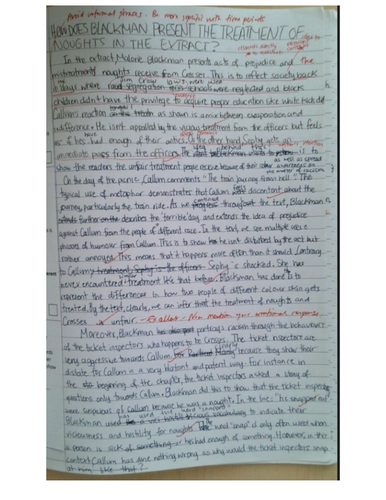 Avoid informal phrases. Be more specific with time points
HOW DOES BLACKMAN PRESENT THE TREATMENT OF
NOUGHTS IN THE EXTRACT?
In the extract, Malorie Blackman presents acts of prejudice and the
mistreatments noughts receive from Crosses. This is to reflect society back
Jim Crow laws were used
to days where segregation schools were neglected and blacks
children didn't have the privilege to acquire proper education like white kids did
Callum's reaction is shown as in between exasperation and
indifference. He isn't appalled by the vicious treatment from the officers but feels
as if he's had enough of their antics. On the other hand, Sephy gets up
immediate pass from the officers.
show the reactions the unfair treatment people receive because of their
On the day of the picnic Callum comments "The train journey from hell". The
typical use of metaphor demonstrates that Callum discontent about the
journey, particularly the train ride. As we throughout the text, Blackman
the terrible day, and extends the idea of prejudice
against Callum from the people of different race. In the text, we see multiple uses
phrases of humour from Callum. This is to show he isn't disturbed by the act but
rather annoyed. This means that it happens more often than it should. Contrary
to Callum's Sephy is shocked. She has
never encountered treatment like that before. Blackman has done this to
represent the differences in how two people of different colour skin gets
treated. By the text, clearly, we can infer that the treatment of noughts and
Crosses is unfair. - Excellent -
Moreover, Blackman portrays racism through the behaviours
of the ticket inspectors who happens to be Crosses. The ticket inspectors are
very aggressive towards Callum because they show their
dislike for Callum in a very blatant and potent way. For instance in
the beginning of the chapter, the ticket inspectors asked a string of
questions only towards Callum. Blackman did this to show that the ticket inspectors
were suspicious of Callum because he was a nought. In the line: "he snapped"
Blackman used to indicate their
viciousness and hostility for noughts. The word 'snap' is only often used when
a person is sick of something or has had enough of something. However, in this
context Callum has done nothing wrong, so why would the ticket inspectors snap
at him like that?